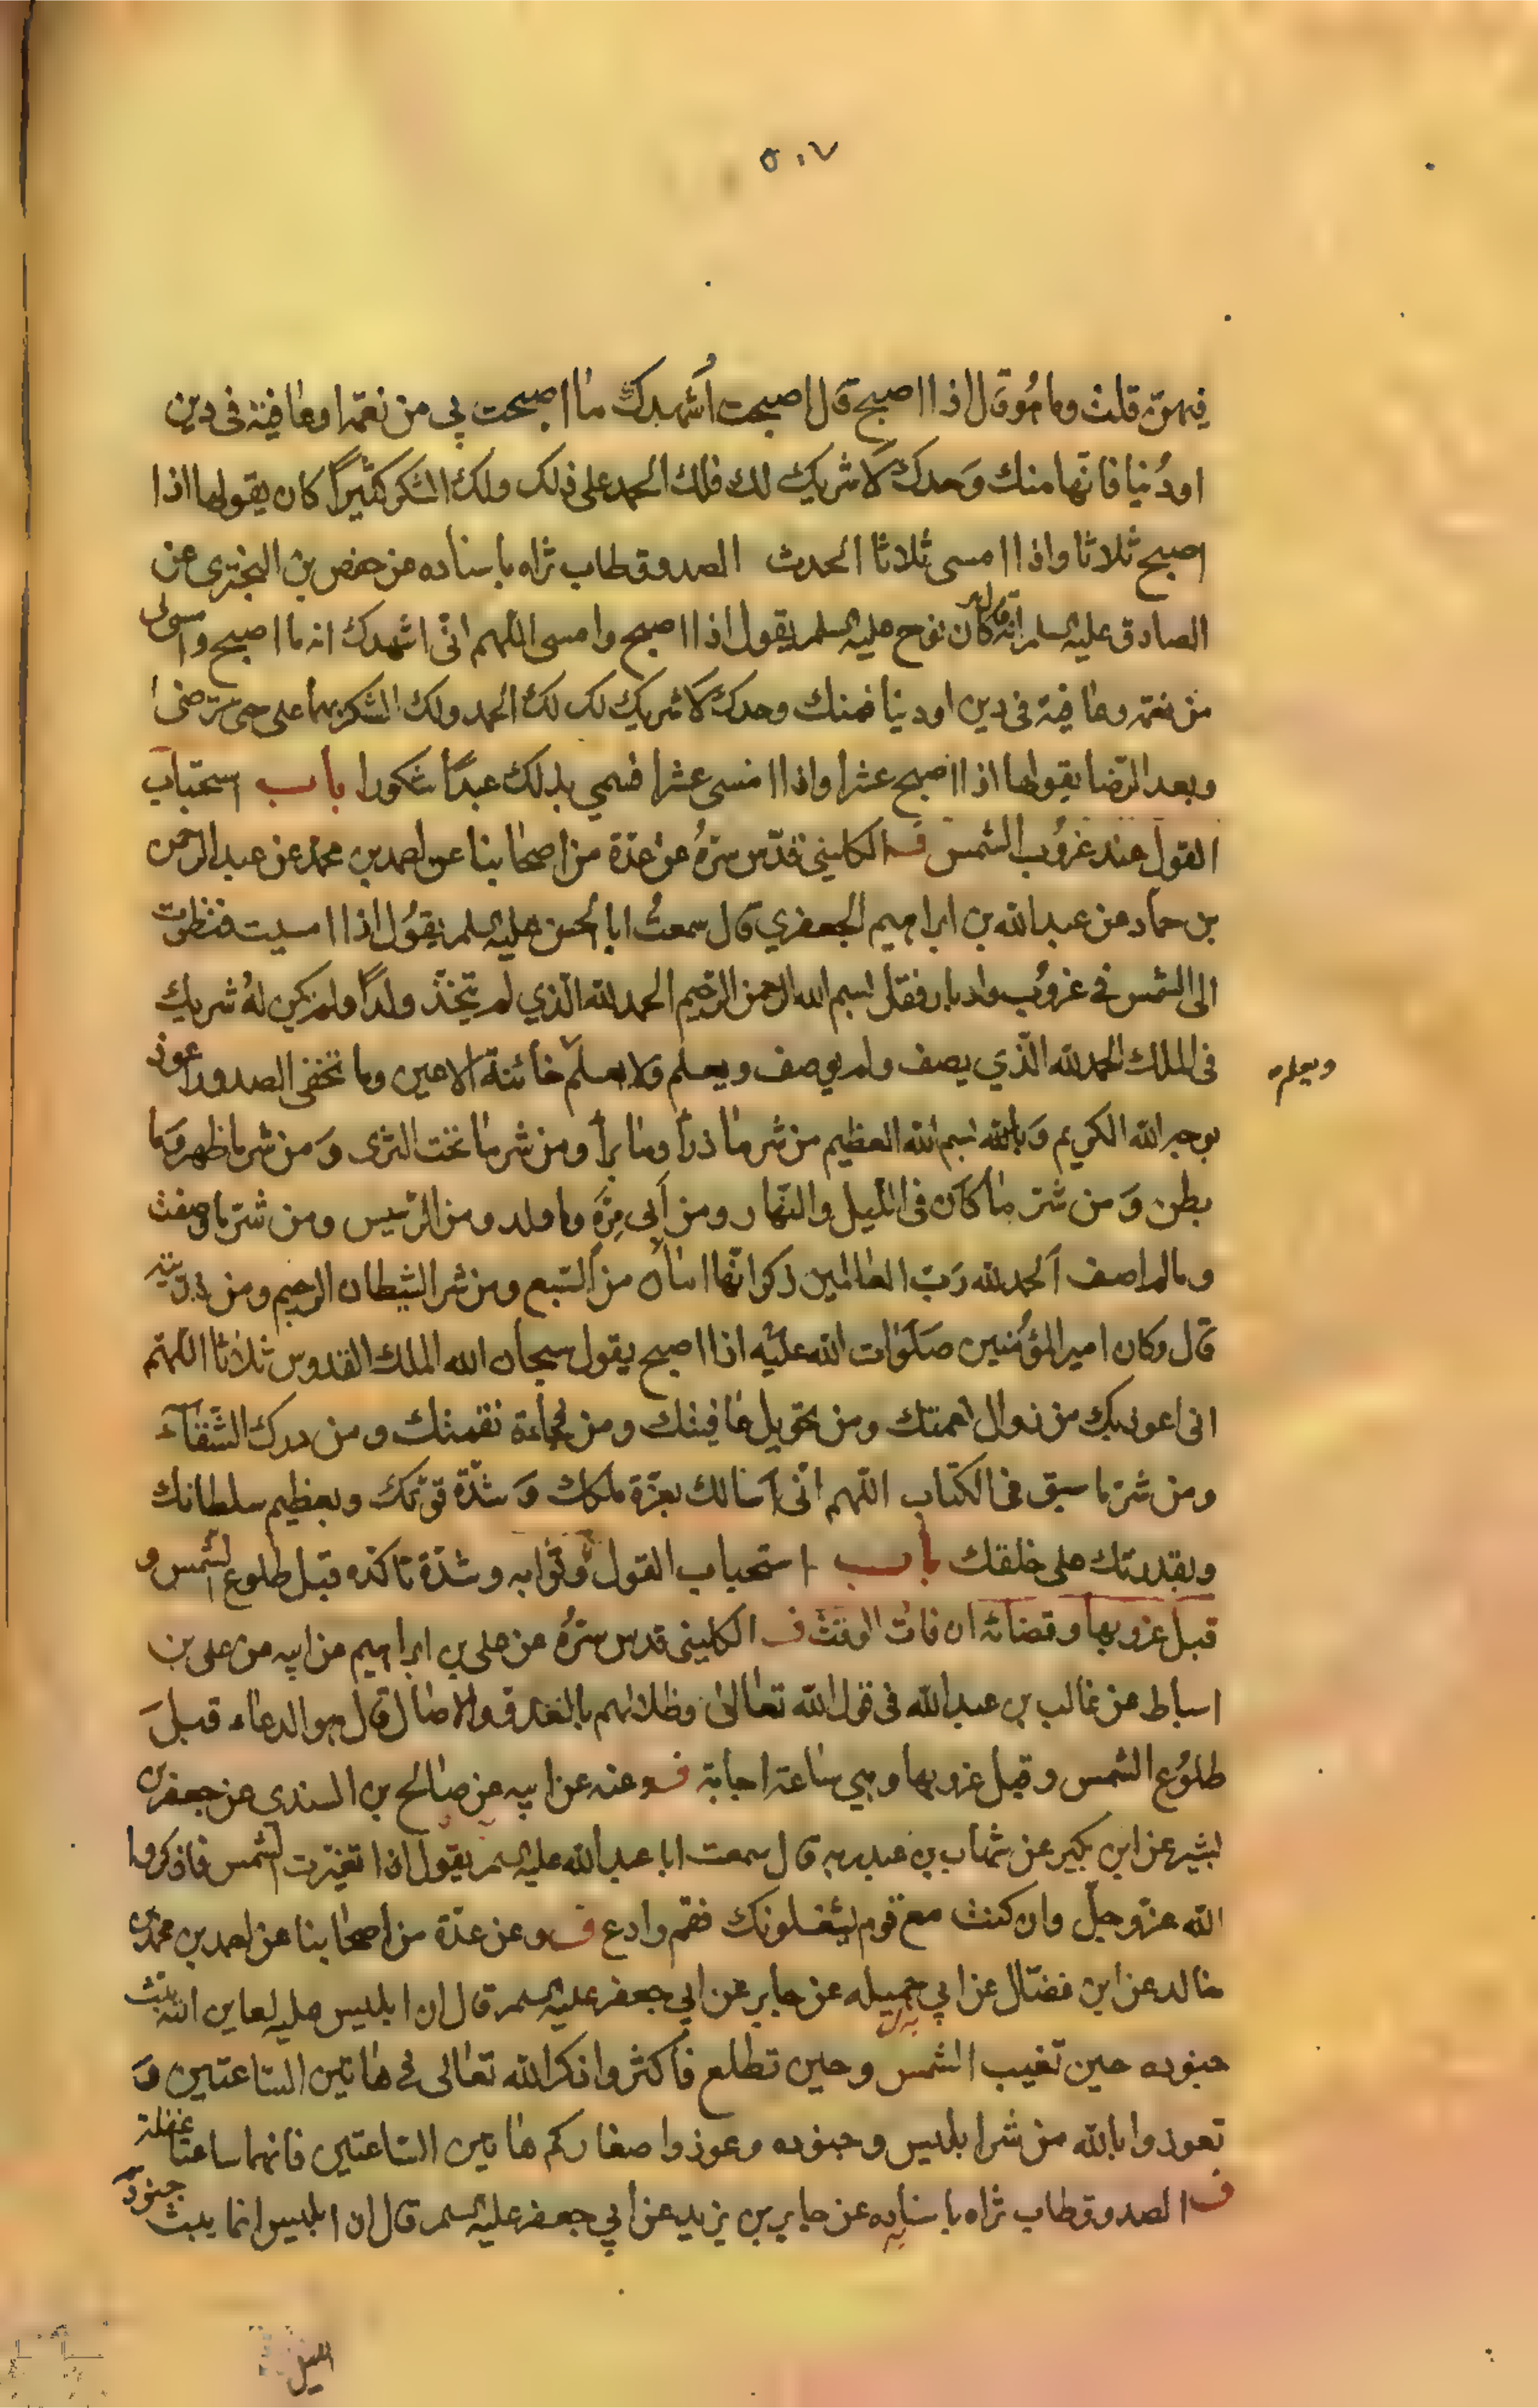 ٥٠٧
فيهن قلت وما هو قال اذا اصبح قال اصبحت أشهدك ما اصبحت بي من نعمة او عافية في دين
او دُنيا فانها منك وَحدك لا شريك لك فلك الحمد على ذلك ولك الشكر كثيراً كان يقولها اذا
اصبح ثلاثا واذا امسى ثلاثا الحديث الصدوق طاب ثراه باسناده عن حفص بن البختري عن
الصادق عليه السلم انه قال كان نوح عليه السلم يقول اذا اصبح وامسى اللهم اني اشهدك انه ما اصبح وامسى بي
من نعمة وعافية في دين او دنيا فمنك وحدك لا شريك لك لك الحمد ولك الشكر بها على حتى ترضى
وبعد الرضا يقولها اذا اصبح عشرا واذا امسى عشرا فسمي بذلك عبداً شكورا باب استحباب
القول عند غروب الشمس ف الكليني قدّس سرّهُ عن عدّة من اصحابنا عن احمد بن محمد عن عبد الرحمن
بن حماد عن عبد الله بن ابراهيم الجعفري قال سمعتُ ابا الحسن عليه السلم يقوُل اذا امسيت فنظرت
الى الشمس في غروُب وادبار فقل بسم الله الرحمن الرحيم الحمد لله الذي لم يتخذ ولداً ولم يكن لهُ شريك
في الملك الحمد لله الّذي يصف ولم يوصف ويعلم ولا يعلم خائنة الاعين وما تخفى الصدور اعوذ
ويعلم
بوجه الله الكريم وَبالله بسم الله العظيم من شر ما ذرأ وما برأ ومن شر ما تحت الثرى وَمن شر ما ظهر وَما
بطن وَمن شر ما كان في الليل والنهار ومن أبي مرّة وما ولد ومن الرّسيس ومن شر ما وصفت
وما لم اصف الحمد لله رَبّ العالمين ذكر انّها امان من السّبع ومن شر الشيطان الرجيم ومن ذريته
قال وكان امير المؤمنين صلوات الله عليه اذا اصبح يقول سبحان الله الملك القدوس ثلاثا اللهم
اني اعوذ بك من زوال نعمتك ومن تحويل عافيتك ومن فجأة نقمتك ومن درك الشقاء
ومن شر ما سبق في الكتاب اللهم انّي اسالك بعزّة ملكك وَشدّة قوّتك وبعظيم سلطانك
وبقدرتك على خلقك باب استحباب القول وثوابه وشدّة تاكده قبل طلوع الشمس و
قبل غروبها وقضائه ان فات الوقت ف الكليني قدس سرُه عن علي بن ابراهيم عن ابيه عن علي بن
اسباط عن غالب بن عبد الله في قول الله تعالى وظلالهم بالغدو والاصال قال هو الدعاء قبل
طلوُع الشمس وقبل غروبها وهي ساعة اجابة ف وعنه عن ابيه عن صالح بن السندي عن جعفر بن
بشير عن ابن بكير عن شهاب بن عبد ربه قال سمعت ابا عبد الله عليه السلم يقول اذا تغيّرت الشمس فاذكروا
الله عزّ وجلّ وان كنت مع قوم يشغلونك فقم وادع ف وعن عدّة من اصحابنا عن احمد بن محمد بن
خالد عن ابن فضّال عن ابي جميله عن جابر عن ابي جعفر عليه السلم قال ان ابليس عليه لعاين الله يبث
جنوده حين تغيب الشمس وحين تطلع فأكثروا ذكر الله تعالى في هاتين الساعتين وَ
تعوذوا بالله من شر ابليس وجنوده وعوذوا صغاركم هاتين الساعتين فانهما ساعتا غفلة
ف الصدوق طاب ثراه باسناده عن جابر بن يزيد عن أبي جعفر عليه السلم قال ان ابليس انما يبث جنود
الليل